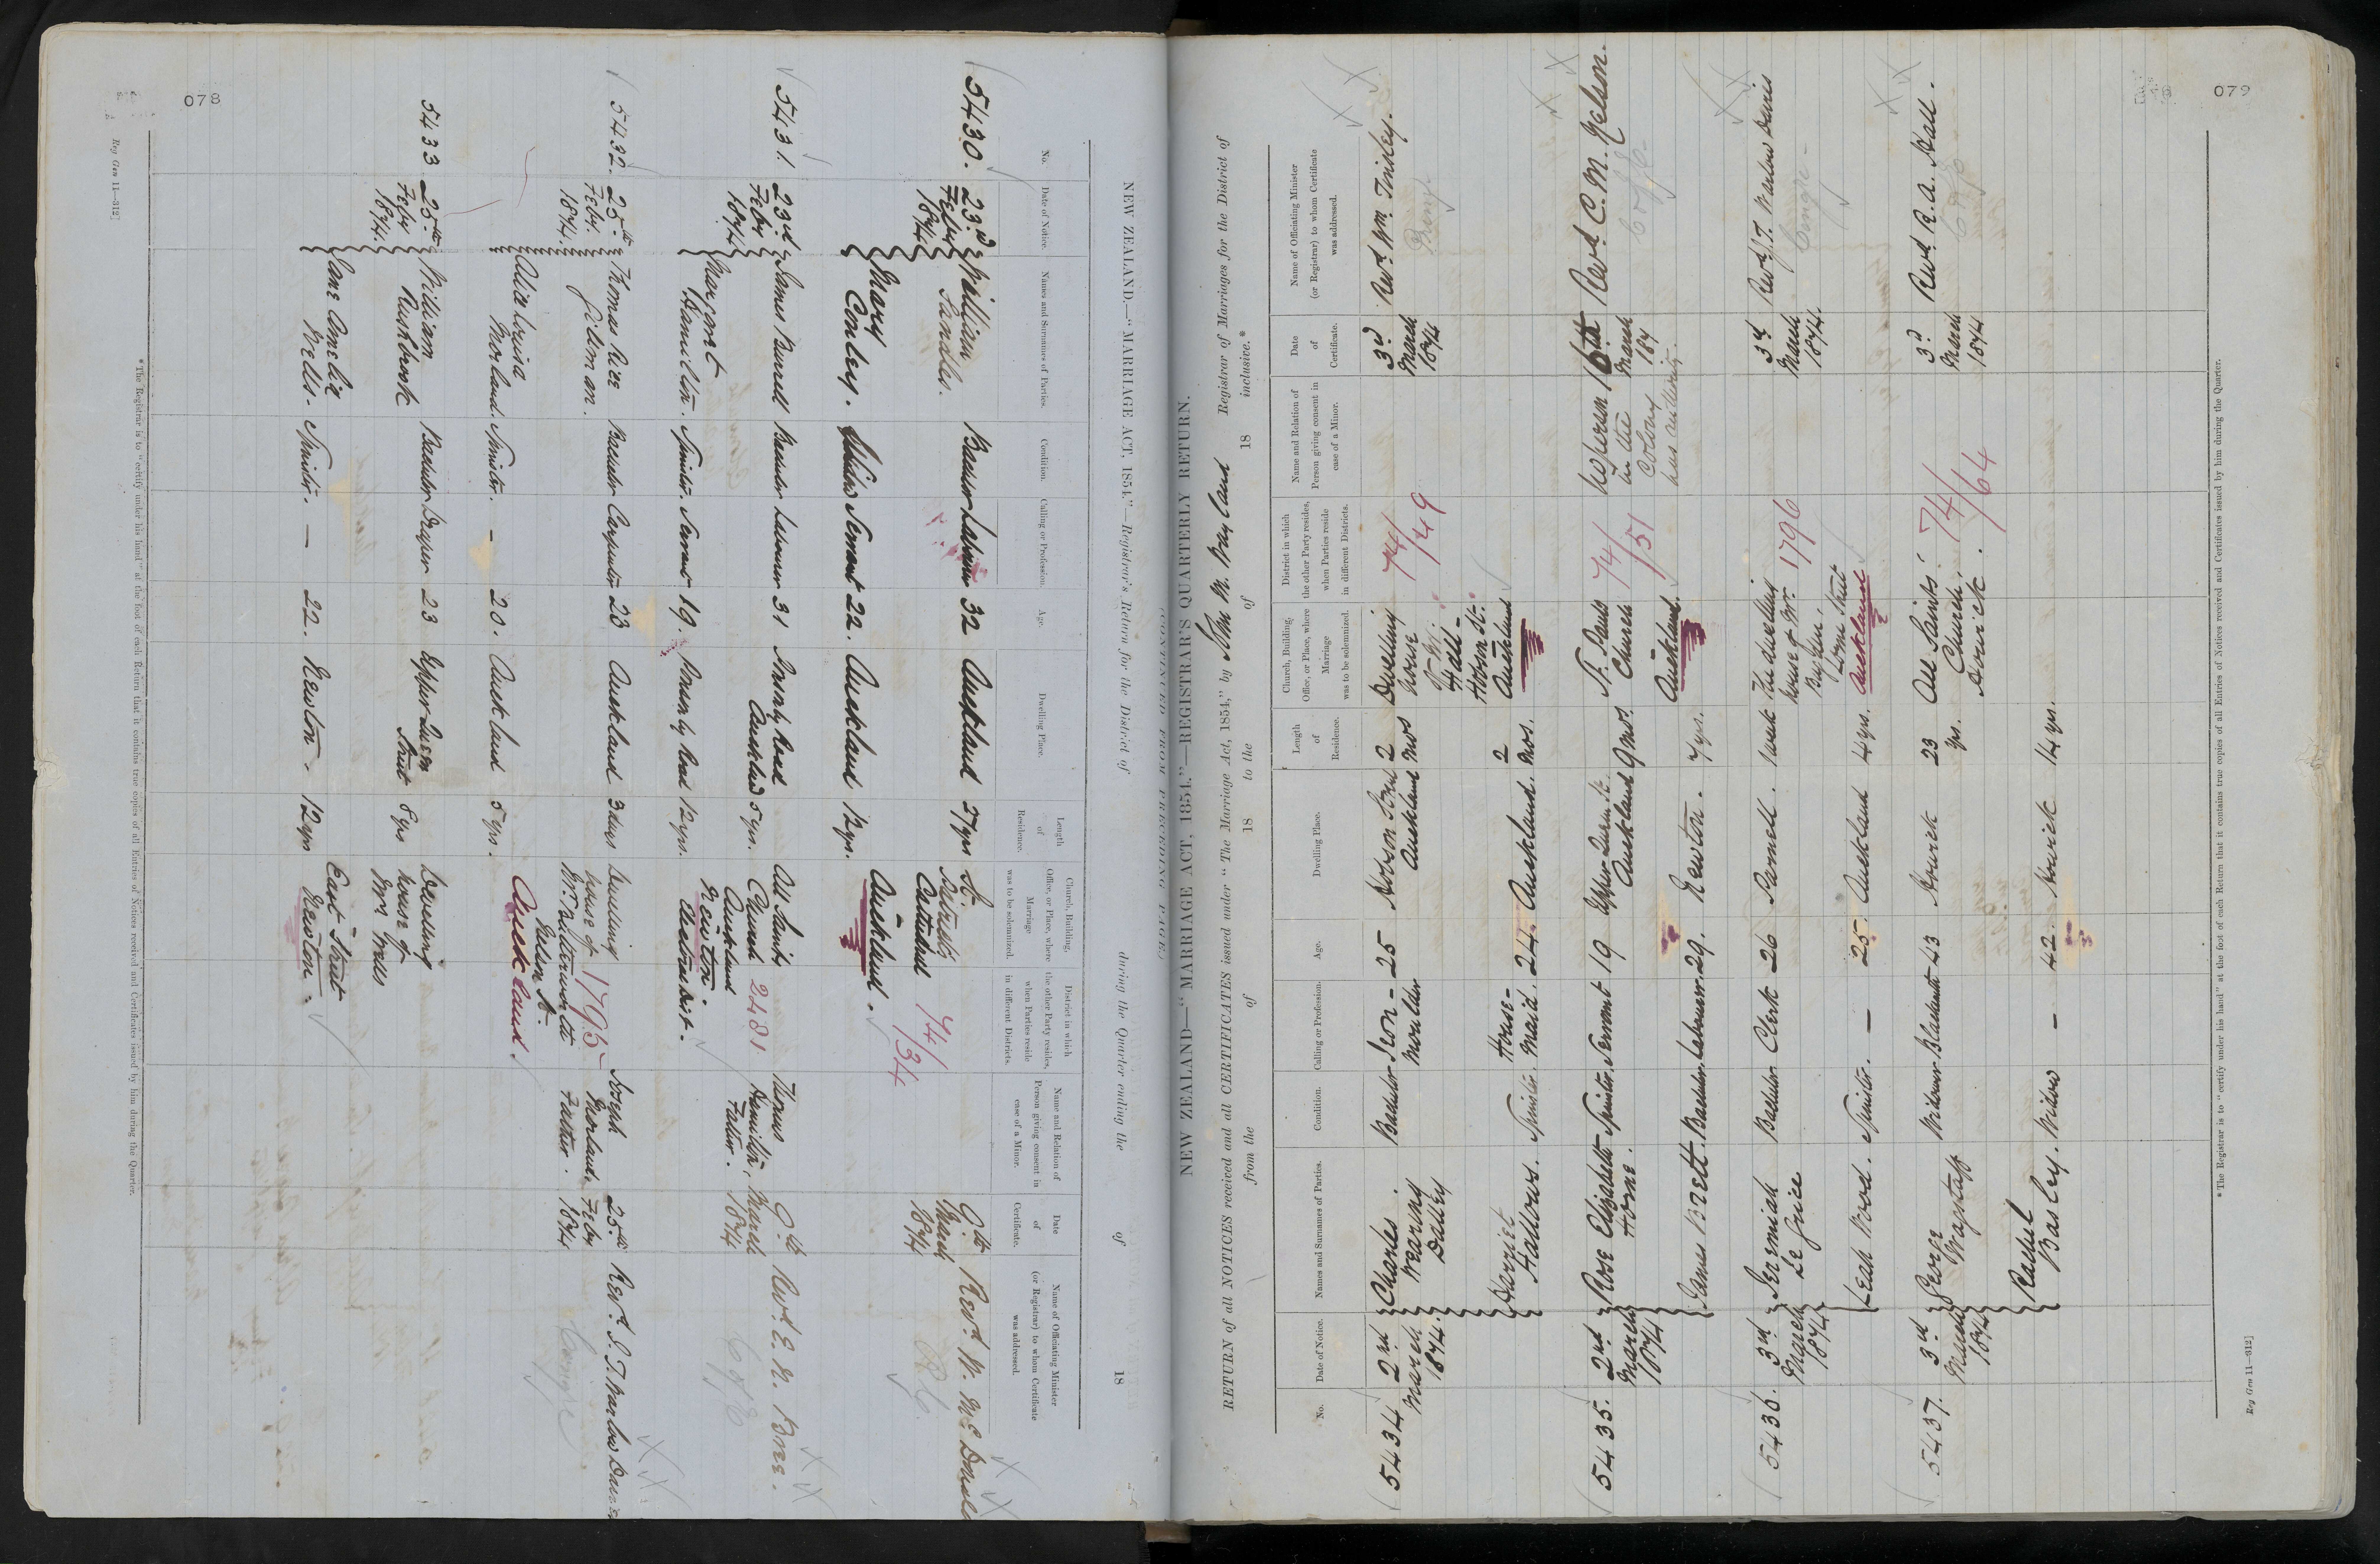 078
Reg Gen 11—312]
NEW ZEALAND.—"MARRIAGE ACT, 1854."—Registrar's Return for the District of during the Quarter ending the of 18
No.
Date of Notice.
Names and Surnames of Parties.
Condition.
Calling or Profession.
Age.
Dwelling Place.
Length of Residence.
Church, Building, Office, or Place, where Marriage was to be solemnized.
District in which the other Party resides, when Parties reside in different Districts.
Name and Relation of Person giving consent in case of a Minor.
Date of Certificate.
Name of Officiating Minister (or Registrar) to whom Certificate was addressed.
5430. 23rd Feby 1874.
William
Bachelor Labourer 32 Auckland 27 yrs
St. Patrick's Cathedral
Auckland.
74/134
9th March 1874
Revd. W. McDonald
R.C.
Mary Conley. Servant 22. Auckland 12 yrs.
5431. 23rd Feby 1874
James Burrell Bachelor Labourer 31
Auckland 5 yrs.
All Saints Church Auckland
Newton.
2481
Thomas Hamilton, Father.
9th March 1874
Revd. E. H.
C of E
Margaret Hamilton. Spinster. Servant 19. 12 yrs.
5432. 25th Feby. 1874.
Thomas Rice
Bachelor Carpenter 23 Auckland 3 days
Dwelling house of Mr.
Nelson St.
Auckland.
1795
Joseph Morland. Father.
25th Feby 1874
Revd. J. T. Warlow Davies
Congre
Alice Louisa Morland. Spinster. — 20. Auckland 5 yrs.
5433 25th Feby 1874.
William Rushbrook
Bachelor Draper 23 Upper Queen Street 8 yrs
Dwelling house of Mrs Wells
East Street
Newton.
Jane Amelia Wells. Spinster. — 22. Newton. 12 yrs
*The Registrar is to "certify under his hand" at the foot of each Return that it contains true copies of all Entries of Notices received and Certificates issued by him during the Quarter.
079
NEW ZEALAND.—"MARRIAGE ACT, 1854."—REGISTRAR'S QUARTERLY RETURN.
RETURN of all NOTICES received and all CERTIFICATES issued under "The Marriage Act, 1854," by John M. Wayland Registrar of Marriages for the District of
from the of 18 to the of 18 inclusive.*
No.
Date of Notice.
Names and Surnames of Parties.
Condition.
Calling or Profession.
Age.
Dwelling Place.
Length of Residence.
Church, Building, Office, or Place, where Marriage was to be solemnized.
District in which the other Party resides, when Parties reside in different Districts.
Name and Relation of Person giving consent in case of a Minor.
Date of Certificate.
Name of Officiating Minister (or Registrar) to whom Certificate was addressed.
5434 2nd March 1874.
Charles Wearing Dalley
Bachelor Iron-Moulder 25 Hobson Street Auckland 2 mos
Dwelling house
Hall -
Hobson St.
Auckland
74/149
3rd March 1874
Revd. Wm. Tinsley.
Harriet Hallows. Spinster. House-Maid. 24. Auckland. 2 mos.
5435. 2nd March 1874
Rose Elizabeth Horne. Spinster. Servant 19 Upper Queen St. Auckland 9 mos.
St. Pauls Church
Auckland.
74/151
No person in the Colony has authority.
16th March 187
Revd. C. M. Nelson.
C of E
James Brett. Bachelor. Labourer. 29. Newton. 7 yrs.
5436. 3rd March 1874
Jeremiah Le Grice
Bachelor Clerk 26 Parnell. 1 week
The dwelling house of Mr.
Lorne Street
Auckland
1796
3rd March 1874.
Rev J. T. Warlow Davies
Congre -
Leah Wood. Spinster. — 25. Auckland 4 yrs.
5437. 3rd March 1874
George Wagstaff
Widower Blacksmith 43 Howick 23 yrs.
All Saints' Church.
Howick.
74/64
3rd March 1874
Revd. R. A. Hall.
C of E
Rachel Basley. Widow — 42. Howick 14 yrs.
*The Registrar is to "certify under his hand" at the foot of each Return that it contains true copies of all Entries of Notices received and Certificates issued by him during the Quarter.
Reg Gen 11—312]